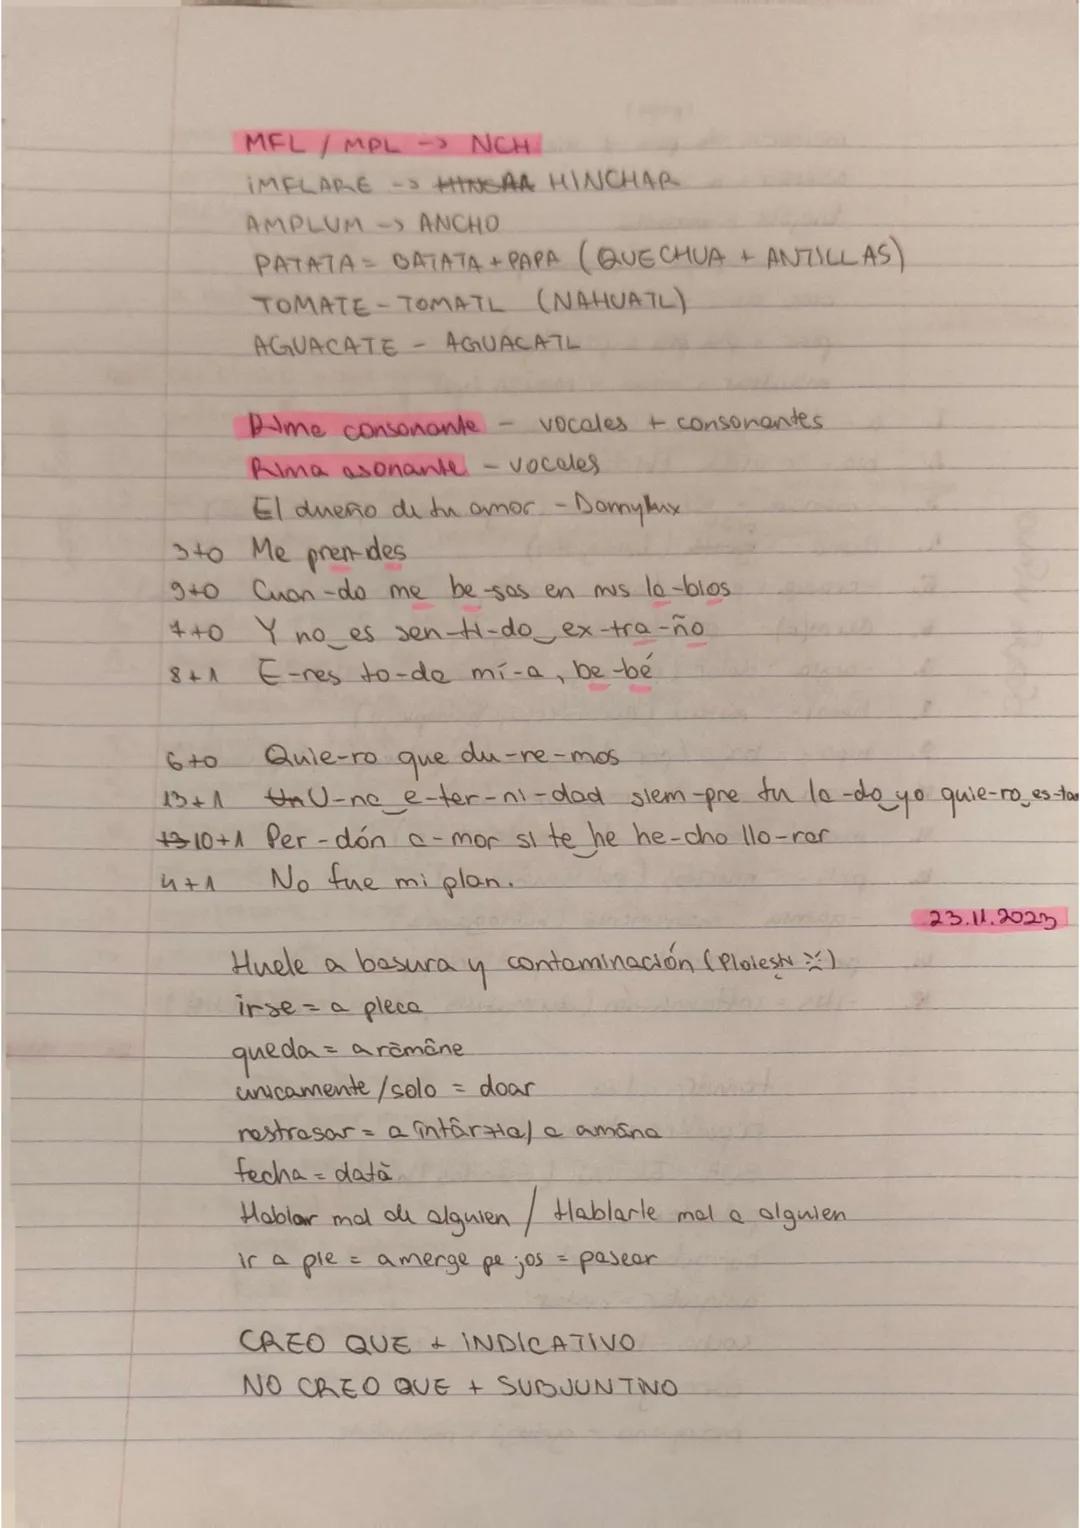 MFL / MPL -> NCH
IMFLARE -> HINCHAR
AMPLUM -> ANCHO
PATATA = BATATA + PAPA (QUECHUA + ANTILLAS)
TOMATE - TOMATL (NAHUATL)
AGUACATE - AGUACATL
Rime consonante - vocales + consonantes
Rima asonante - vocales
El dueño de tu amor - Dannylux
3+0 Me pren-des
9+0 Cuan-do me be-sas en mis la-bios
7+0 Y no_es sen-ti-do_ex-tra-ño
8+1 E-res to-da mí-a, be-bé
6+0 Quie-ro que du-re-mos
13+1 U-na_e-ter-ni-dad siem-pre tu la-do_yo quie-ro_es-tar
10+1 Per-dón a-mor si te_he he-cho llo-rar
4+1 No fue mi plan.
23.11.2023
Huele a basura y contaminación (Ploiești :()
irse = a pleca
queda = a rămâne
unicamente/solo = doar
rastrasar = a întârzia/a amâna
fecha = dată
Hablar mal de alguien / Hablarle mal a alguien
ir a pie = a merge pe jos = pasear
CREO QUE + INDICATIVO
NO CREO QUE + SUBJUNTIVO